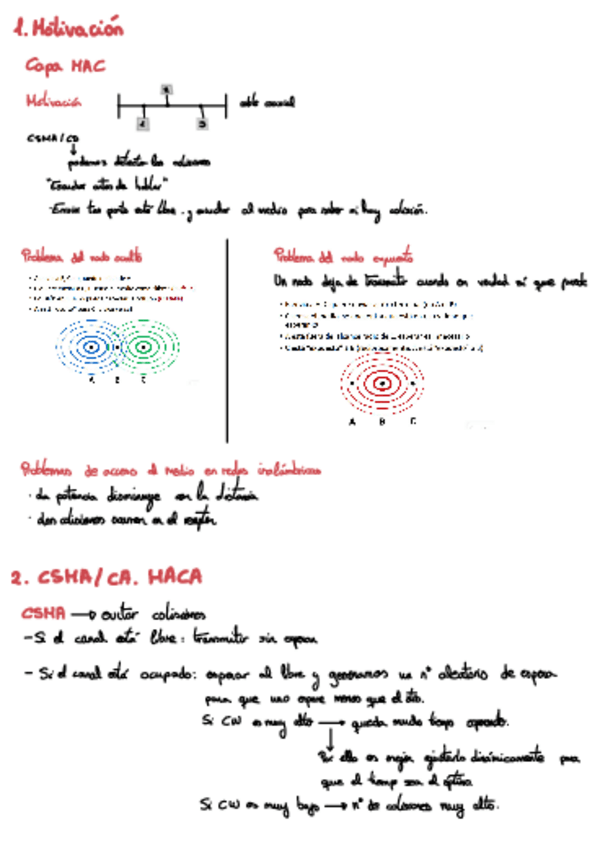 1. Motivación
Capa MAC
Motivación
cable coaxial
CSMA/CD
podemos detectar las colisiones
"Escuchar antes de hablar"
Enviar tan pronto esté libre y escuchar al medio para saber si hay colisión.
Problema del nodo oculto
A B C
Problema del nodo expuesto
Un nodo deja de transmitir cuando en verdad sí que puede
A B C
Problemas de acceso al Medio en redes inalámbricas
· La potencia disminuye con la distancia
· Las colisiones ocurren en el receptor
2. CSMA/CA. MACA
CSMA → evitar colisiones
- Si el canal está libre: transmitir sin esperar
- Si el canal está ocupado: esperar al libre y generamos un nº aleatorio de espera
para que uno espere menos que el otro.
Si CW es muy alto → queda mucho tiempo esperando.
Por ello es mejor ajustarlo dinámicamente para
que el tiempo sea el óptimo
Si CW es muy bajo → nº de colisiones muy alto.